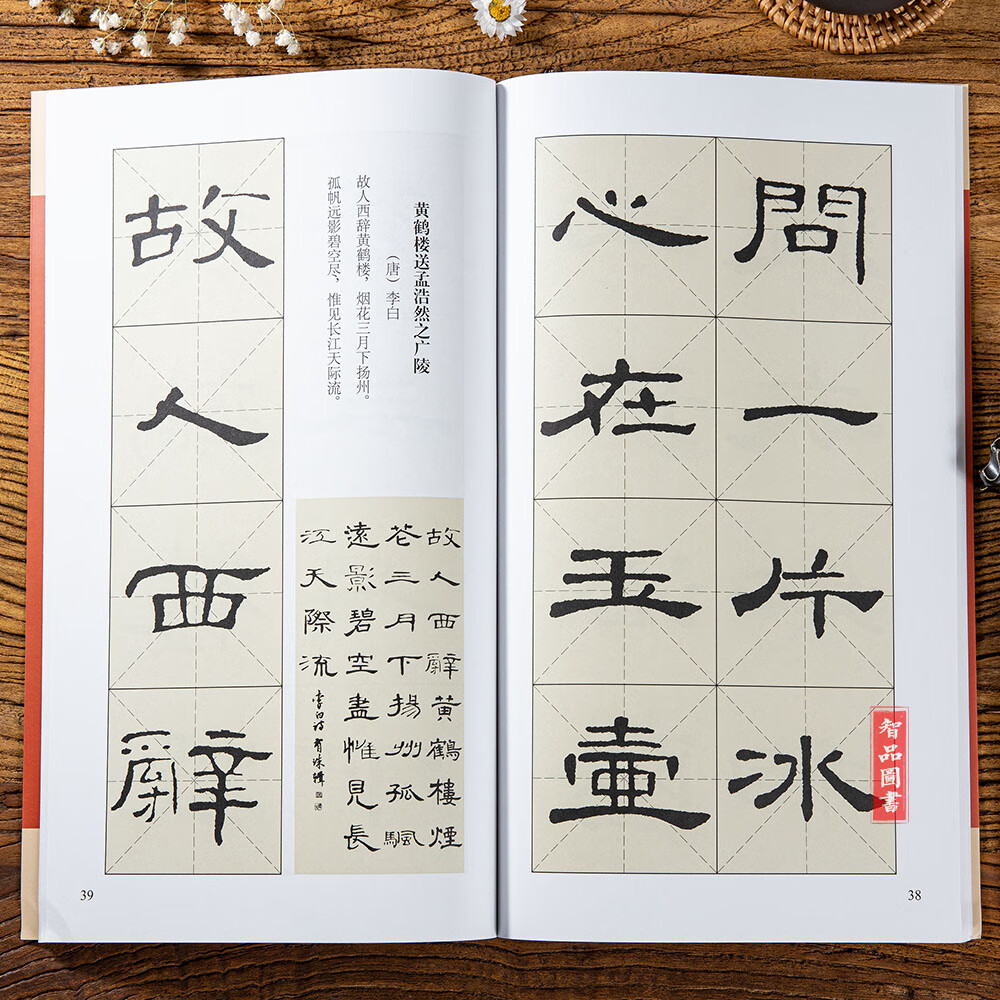 問一片冰
心在玉壺
智品圖書
38
黄鹤楼送孟浩然之广陵
（唐）李白
故人西辞黄鹤楼，烟花三月下扬州。
孤帆远影碧空尽，惟见长江天际流。
故人西辭黄鶴樓煙
花三月下揚州孤颿
遠影碧空盡惟見長
江天際流
李白诗
故人西辭
39